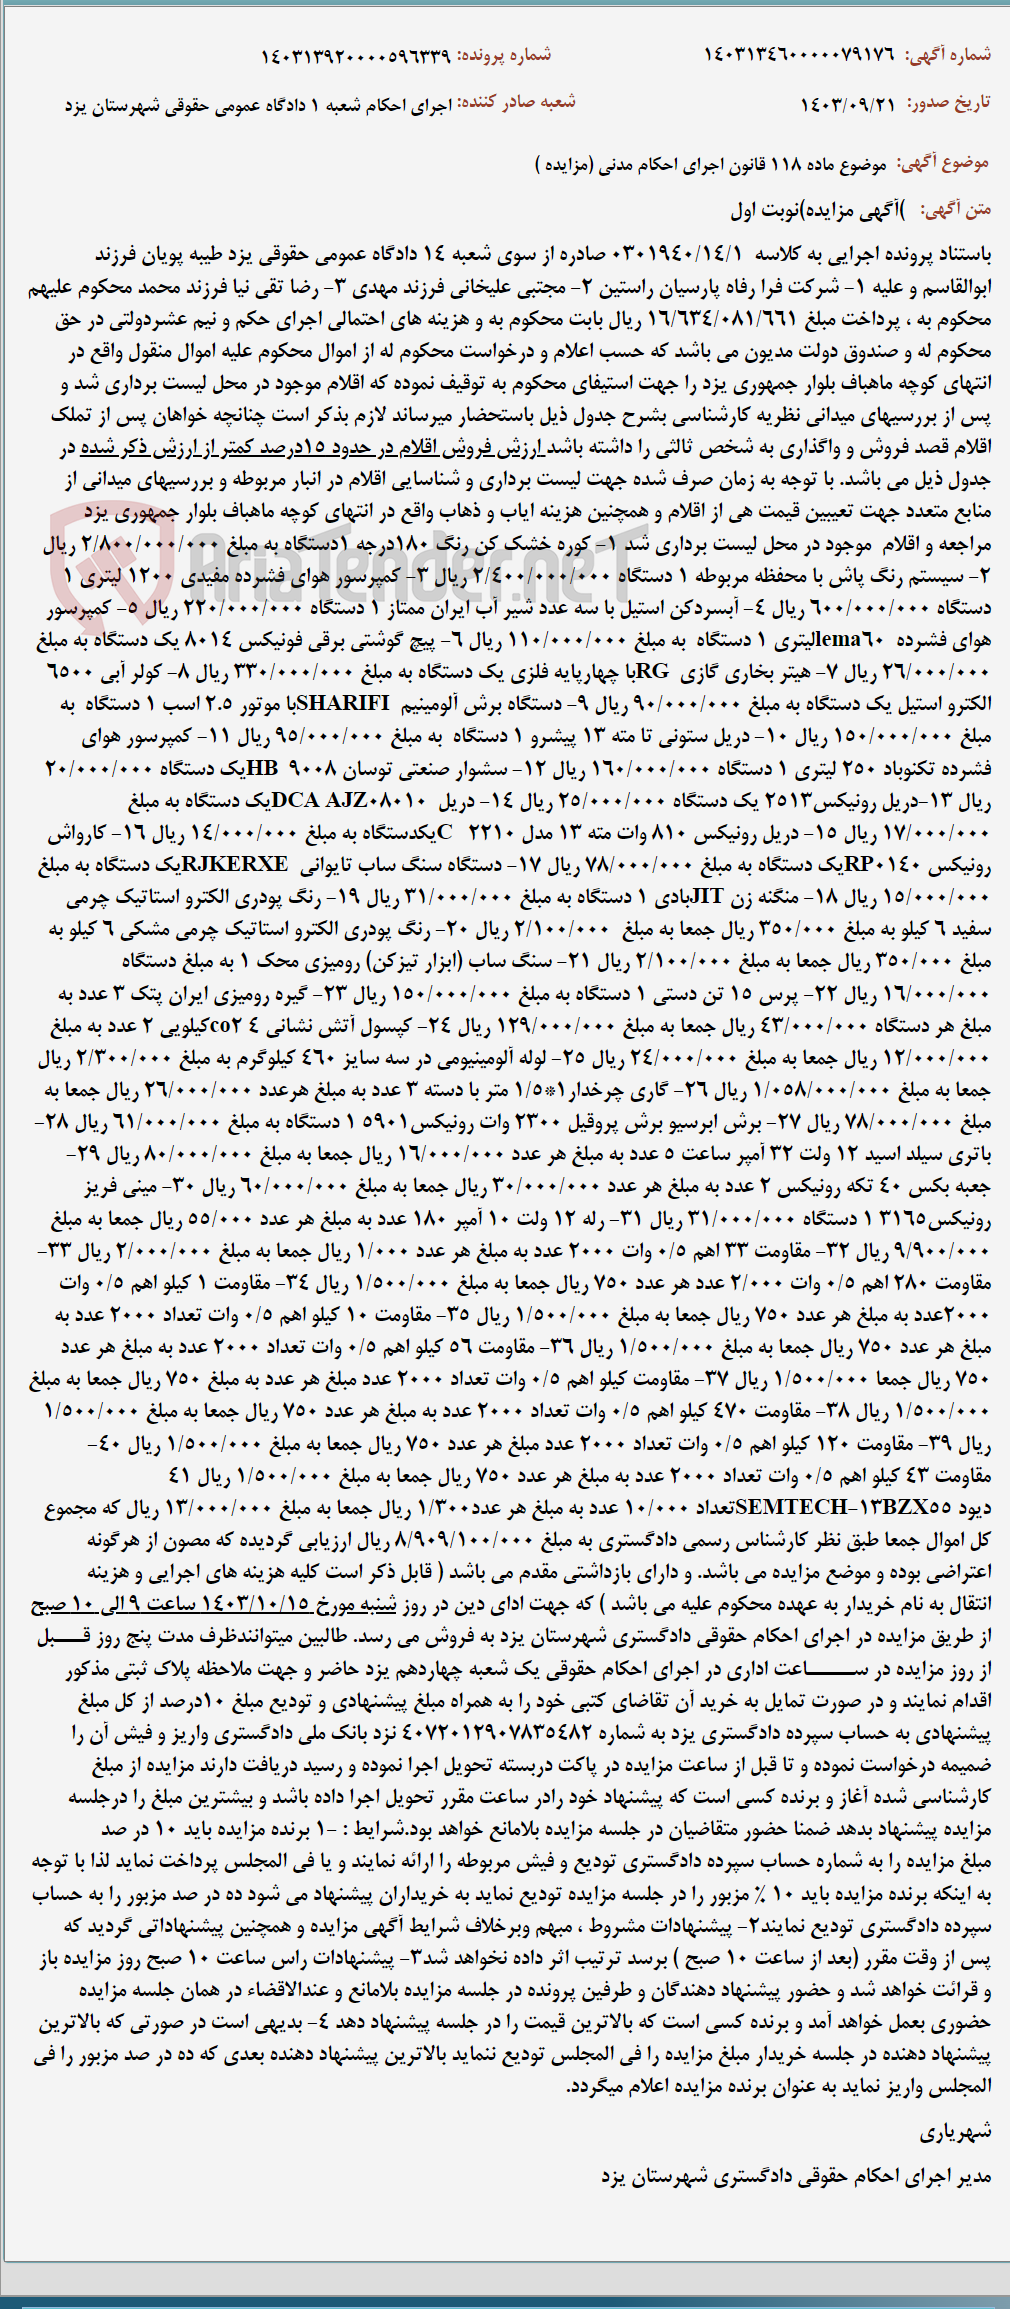 شماره آگهی: ۱۴۰۳۱۳۴۶۰۰۰۰۰۷۹۱۷۶ شماره پرونده: ۱۴۰۳۱۳۹۲۰۰۰۰۵۹۶۳۳۹
تاریخ صدور: ۱۴۰۳/۰۹/۲۱ شعبه صادر کننده: اجرای احکام شعبه ۱ دادگاه عمومی حقوقی شهرستان یزد
موضوع آگهی: موضوع ماده ۱۱۸ قانون اجرای احکام مدنی (مزایده )
متن آگهی: )آگهی مزایده)نوبت اول
باستناد پرونده اجرایی به کلاسه ۰۳۰۱۹۴۰/۱۴/۱ صادره از سوی شعبه ۱۴ دادگاه عمومی حقوقی یزد طیبه پویان فرزند
ابوالقاسم و علیه ۱- شرکت فرا رفاه پارسیان راستین ۲- مجتبی علیخانی فرزند مهدی ۳- رضا تقی نیا فرزند محمد محکوم علیهم
محکوم به ، پرداخت مبلغ ۱۶/۶۳۴/۰۸۱/۶۶۱ ریال بابت محکوم به و هزینه های احتمالی اجرای حکم و نیم عشردولتی در حق
محکوم له و صندوق دولت مدیون می باشد که حسب اعلام و درخواست محکوم له از اموال محکوم علیه اموال منقول واقع در
انتهای کوچه ماهباف بلوار جمهوری یزد را جهت استیفای محکوم به توقیف نموده که اقلام موجود در محل لیست برداری شد و
پس از بررسیهای میدانی نظریه کارشناسی بشرح جدول ذیل باستحضار میرساند لازم بذکر است چنانچه خواهان پس از تملک
اقلام قصد فروش و واگذاری به شخص ثالثی را داشته باشد ارزش فروش اقلام در حدود ۱۵درصد کمتر از ارزش ذکر شده در
جدول ذیل می باشد. با توجه به زمان صرف شده جهت لیست برداری و شناسایی اقلام در انبار مربوطه و بررسیهای میدانی از
منابع متعدد جهت تعییین قیمت هی از اقلام و همچنین هزینه ایاب و ذهاب واقع در انتهای کوچه ماهباف بلوار جمهوری یزد
مراجعه و اقلام موجود در محل لیست برداری شد ۱- کوره خشک کن رنگ ۱۸۰درجه ۱دستگاه به مبلغ ۲/۸۰۰/۰۰۰/۰۰۰ ریال
۲- سیستم رنگ پاش با محفظه مربوطه ۱ دستگاه ۲/۴۰۰/۰۰۰/۰۰۰ ریال ۳- کمپرسور هوای فشرده مفیدی ۱۲۰۰ لیتری ۱
دستگاه ۶۰۰/۰۰۰/۰۰۰ ریال ۴- آبسردکن استیل با سه عدد شیر آب ایران ممتاز ۱ دستگاه ۲۲۰/۰۰۰/۰۰۰ ریال ۵- کمپرسور
هوای فشرده lema۶۰لیتری ۱ دستگاه به مبلغ ۱۱۰/۰۰۰/۰۰۰ ریال ۶- پیچ گوشتی برقی فونیکس ۸۰۱۴ یک دستگاه به مبلغ
۲۶/۰۰۰/۰۰۰ ریال ۷- هیتر بخاری گازی RGبا چهارپایه فلزی یک دستگاه به مبلغ ۳۳۰/۰۰۰/۰۰۰ ریال ۸- کولر آبی ۶۵۰۰
الکترو استیل یک دستگاه به مبلغ ۹۰/۰۰۰/۰۰۰ ریال ۹- دستگاه برش آلومینیم SHARIFIبا موتور ۲.۵ اسب ۱ دستگاه به
مبلغ ۱۵۰/۰۰۰/۰۰۰ ریال ۱۰- دریل ستونی تا مته ۱۳ پیشرو ۱ دستگاه به مبلغ ۹۵/۰۰۰/۰۰۰ ریال ۱۱- کمپرسور هوای
فشرده تکنوباد ۲۵۰ لیتری ۱ دستگاه ۱۶۰/۰۰۰/۰۰۰ ریال ۱۲- سشوار صنعتی توسان ۹۰۰۸ HBیک دستگاه ۲۰/۰۰۰/۰۰۰
ریال ۱۳-دریل رونیکس۲۵۱۳ یک دستگاه ۲۵/۰۰۰/۰۰۰ ریال ۱۴- دریل DCA AJZ۰۸۰۱۰یک دستگاه به مبلغ
۱۷/۰۰۰/۰۰۰ ریال ۱۵- دریل رونیکس ۸۱۰ وات مته ۱۳ مدل ۲۲۱۰ Cیکدستگاه به مبلغ ۱۴/۰۰۰/۰۰۰ ریال ۱۶- کارواش
رونیکس RP۰۱۴۰یک دستگاه به مبلغ ۷۸/۰۰۰/۰۰۰ ریال ۱۷- دستگاه سنگ ساب تایوانی RJKERXEیک دستگاه به مبلغ
۱۵/۰۰۰/۰۰۰ ریال ۱۸- منگنه زن JITبادی ۱ دستگاه به مبلغ ۳۱/۰۰۰/۰۰۰ ریال ۱۹- رنگ پودری الکترو استاتیک چرمی
سفید ۶ کیلو به مبلغ ۳۵۰/۰۰۰ ریال جمعا به مبلغ ۲/۱۰۰/۰۰۰ ریال ۲۰- رنگ پودری الکترو استاتیک چرمی مشکی ۶ کیلو به
مبلغ ۳۵۰/۰۰۰ ریال جمعا به مبلغ ۲/۱۰۰/۰۰۰ ریال ۲۱- سنگ ساب (ابزار تیزکن) رومیزی محک ۱ به مبلغ دستگاه
۱۶/۰۰۰/۰۰۰ ریال ۲۲- پرس ۱۵ تن دستی ۱ دستگاه به مبلغ ۱۵۰/۰۰۰/۰۰۰ ریال ۲۳- گیره رومیزی ایران پتک ۳ عدد به
مبلغ هر دستگاه ۴۳/۰۰۰/۰۰۰ ریال جمعا به مبلغ ۱۲۹/۰۰۰/۰۰۰ ریال ۲۴- کپسول آتش نشانی co۲ ۴کیلویی ۲ عدد به مبلغ
۱۲/۰۰۰/۰۰۰ ریال جمعا به مبلغ ۲۴/۰۰۰/۰۰۰ ریال ۲۵- لوله آلومینیومی در سه سایز ۴۶۰ کیلوگرم به مبلغ ۲/۳۰۰/۰۰۰ ریال
جمعا به مبلغ ۱/۰۵۸/۰۰۰/۰۰۰ ریال ۲۶- گاری چرخدار۱*۱/۵ متر با دسته ۳ عدد به مبلغ هرعدد ۲۶/۰۰۰/۰۰۰ ریال جمعا به
مبلغ ۷۸/۰۰۰/۰۰۰ ریال ۲۷- برش ابرسیو برش پروفیل ۲۳۰۰ وات رونیکس۵۹۰۱ ۱ دستگاه به مبلغ ۶۱/۰۰۰/۰۰۰ ریال ۲۸-
باتری سیلد اسید ۱۲ ولت ۳۲ آمپر ساعت ۵ عدد به مبلغ هر عدد ۱۶/۰۰۰/۰۰۰ ریال جمعا به مبلغ ۸۰/۰۰۰/۰۰۰ ریال ۲۹-
جعبه بکس ۴۰ تکه رونیکس ۲ عدد به مبلغ هر عدد ۳۰/۰۰۰/۰۰۰ ریال جمعا به مبلغ ۶۰/۰۰۰/۰۰۰ ریال ۳۰- مینی فریز
رونیکس۳۱۶۵ ۱ دستگاه ۳۱/۰۰۰/۰۰۰ ریال ۳۱- رله ۱۲ ولت ۱۰ آمپر ۱۸۰ عدد به مبلغ هر عدد ۵۵/۰۰۰ ریال جمعا به مبلغ
۹/۹۰۰/۰۰۰ ریال ۳۲- مقاومت ۳۳ اهم ۰/۵ وات ۲۰۰۰ عدد به مبلغ هر عدد ۱/۰۰۰ ریال جمعا به مبلغ ۲/۰۰۰/۰۰۰ ریال ۳۳-
مقاومت ۲۸۰ اهم ۰/۵ وات ۲/۰۰۰ عدد هر عدد ۷۵۰ ریال جمعا به مبلغ ۱/۵۰۰/۰۰۰ ریال ۳۴- مقاومت ۱ کیلو اهم ۰/۵ وات
۲۰۰۰عدد به مبلغ هر عدد ۷۵۰ ریال جمعا به مبلغ ۱/۵۰۰/۰۰۰ ریال ۳۵- مقاومت ۱۰ کیلو اهم ۰/۵ وات تعداد ۲۰۰۰ عدد به
مبلغ هر عدد ۷۵۰ ریال جمعا به مبلغ ۱/۵۰۰/۰۰۰ ریال ۳۶- مقاومت ۵۶ کیلو اهم ۰/۵ وات تعداد ۲۰۰۰ عدد به مبلغ هر عدد
۷۵۰ ریال جمعا ۱/۵۰۰/۰۰۰ ریال ۳۷- مقاومت کیلو اهم ۰/۵ وات تعداد ۲۰۰۰ عدد مبلغ هر عدد به مبلغ ۷۵۰ ریال جمعا به مبلغ
۱/۵۰۰/۰۰۰ ریال ۳۸- مقاومت ۴۷۰ کیلو اهم ۰/۵ وات تعداد ۲۰۰۰ عدد به مبلغ هر عدد ۷۵۰ ریال جمعا به مبلغ ۱/۵۰۰/۰۰۰
ریال ۳۹- مقاومت ۱۲۰ کیلو اهم ۰/۵ وات تعداد ۲۰۰۰ عدد مبلغ هر عدد ۷۵۰ ریال جمعا به مبلغ ۱/۵۰۰/۰۰۰ ریال ۴۰-
مقاومت ۴۳ کیلو اهم ۰/۵ وات تعداد ۲۰۰۰ عدد به مبلغ هر عدد ۷۵۰ ریال جمعا به مبلغ ۱/۵۰۰/۰۰۰ ریال ۴۱
دیود SEMTECH-۱۳BZX۵۵تعداد ۱۰/۰۰۰ عدد به مبلغ هر عدد۱/۳۰۰ ریال جمعا به مبلغ ۱۳/۰۰۰/۰۰۰ ریال که مجموع
کل اموال جمعا طبق نظر کارشناس رسمی دادگستری به مبلغ ۸/۹۰۹/۱۰۰/۰۰۰ ریال ارزیابی گردیده که مصون از هرگونه
اعتراضی بوده و موضع مزایده می باشد. و دارای بازداشتی مقدم می باشد ( قابل ذکر است کلیه هزینه های اجرایی و هزینه
انتقال به نام خریدار به عهده محکوم علیه می باشد ) که جهت ادای دین در روز شنبه مورخ ۱۴۰۳/۱۰/۱۵ ساعت ۹ الی ۱۰ صبح
از طریق مزایده در اجرای احکام حقوقی دادگستری شهرستان یزد به فروش می رسد. طالبین میتوانندظرف مدت پنج روز قـــبل
از روز مزایده در ســـــاعت اداری در اجرای احکام حقوقی یک شعبه چهاردهم یزد حاضر و جهت ملاحظه پلاک ثبتی مذکور
اقدام نمایند و در صورت تمایل به خرید آن تقاضای کتبی خود را به همراه مبلغ پیشنهادی و تودیع مبلغ ۱۰درصد از کل مبلغ
پیشنهادی به حساب سپرده دادگستری یزد به شماره ۴۰۷۲۰۱۲۹۰۷۸۳۵۴۸۲ نزد بانک ملی دادگستری واریز و فیش آن را
ضمیمه درخواست نموده و تا قبل از ساعت مزایده در پاکت دربسته تحویل اجرا نموده و رسید دریافت دارند مزایده از مبلغ
کارشناسی شده آغاز و برنده کسی است که پیشنهاد خود رادر ساعت مقرر تحویل اجرا داده باشد و بیشترین مبلغ را درجلسه
مزایده پیشنهاد بدهد ضمنا حضور متقاضیان در جلسه مزایده بلامانع خواهد بود.شرایط : -۱ برنده مزایده باید ۱۰ در صد
مبلغ مزایده را به شماره حساب سپرده دادگستری تودیع و فیش مربوطه را ارائه نمایند و یا فی المجلس پرداخت نماید لذا با توجه
به اینکه برنده مزایده باید ۱۰ % مزبور را در جلسه مزایده تودیع نماید به خریداران پیشنهاد می شود ده در صد مزبور را به حساب
سپرده دادگستری تودیع نمایند۲- پیشنهادات مشروط ، مبهم وبرخلاف شرایط آگهی مزایده و همچنین پیشنهاداتی گردید که
پس از وقت مقرر (بعد از ساعت ۱۰ صبح ) برسد ترتیب اثر داده نخواهد شد۳- پیشنهادات راس ساعت ۱۰ صبح روز مزایده باز
و قرائت خواهد شد و حضور پیشنهاد دهندگان و طرفین پرونده در جلسه مزایده بلامانع و عندالاقضاء در همان جلسه مزایده
حضوری بعمل خواهد آمد و برنده کسی است که بالاترین قیمت را در جلسه پیشنهاد دهد ۴- بدیهی است در صورتی که بالاترین
پیشنهاد دهنده در جلسه خریدار مبلغ مزایده را فی المجلس تودیع ننماید بالاترین پیشنهاد دهنده بعدی که ده در صد مزبور را فی
المجلس واریز نماید به عنوان برنده مزایده اعلام میگردد.
شهریاری
مدیر اجرای احکام حقوقی دادگستری شهرستان یزد
AriaTender.neT